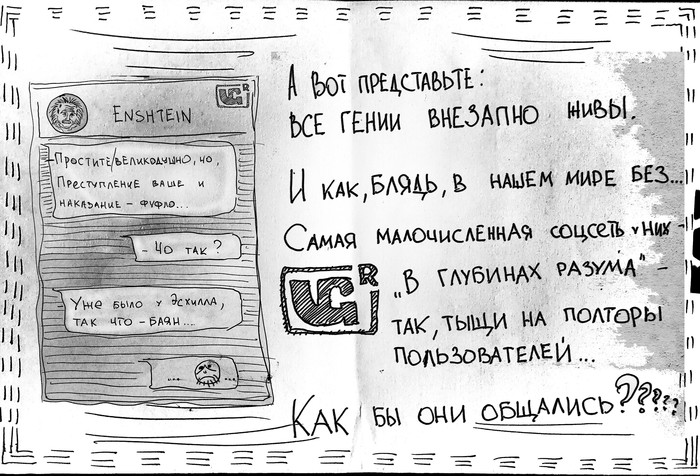 ENSHTEIN
- Простите великодушно, но,
Преступление ваше и
наказание - фуфло...
- Чо так?
Уже было у Эсхилла,
так что - баян...
... ...
А вот представьте:
все гении внезапно живы.
И как, блядь, в нашем мире без...
Самая малочисленная соцсеть у них -
"В глубинах разума" -
так, тыщи на полторы
пользователей...
Как бы они общались??????